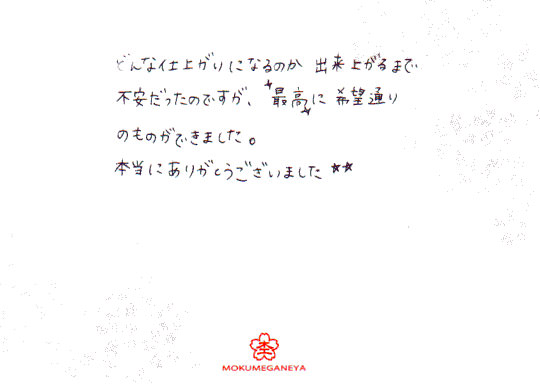 どんな仕上がりになるのか 出来上がるまで
不安だったのですが、"最高"に希望通り
のものができました。
本当にありがとうございました☆☆
杢
MOKUMEGANEYA